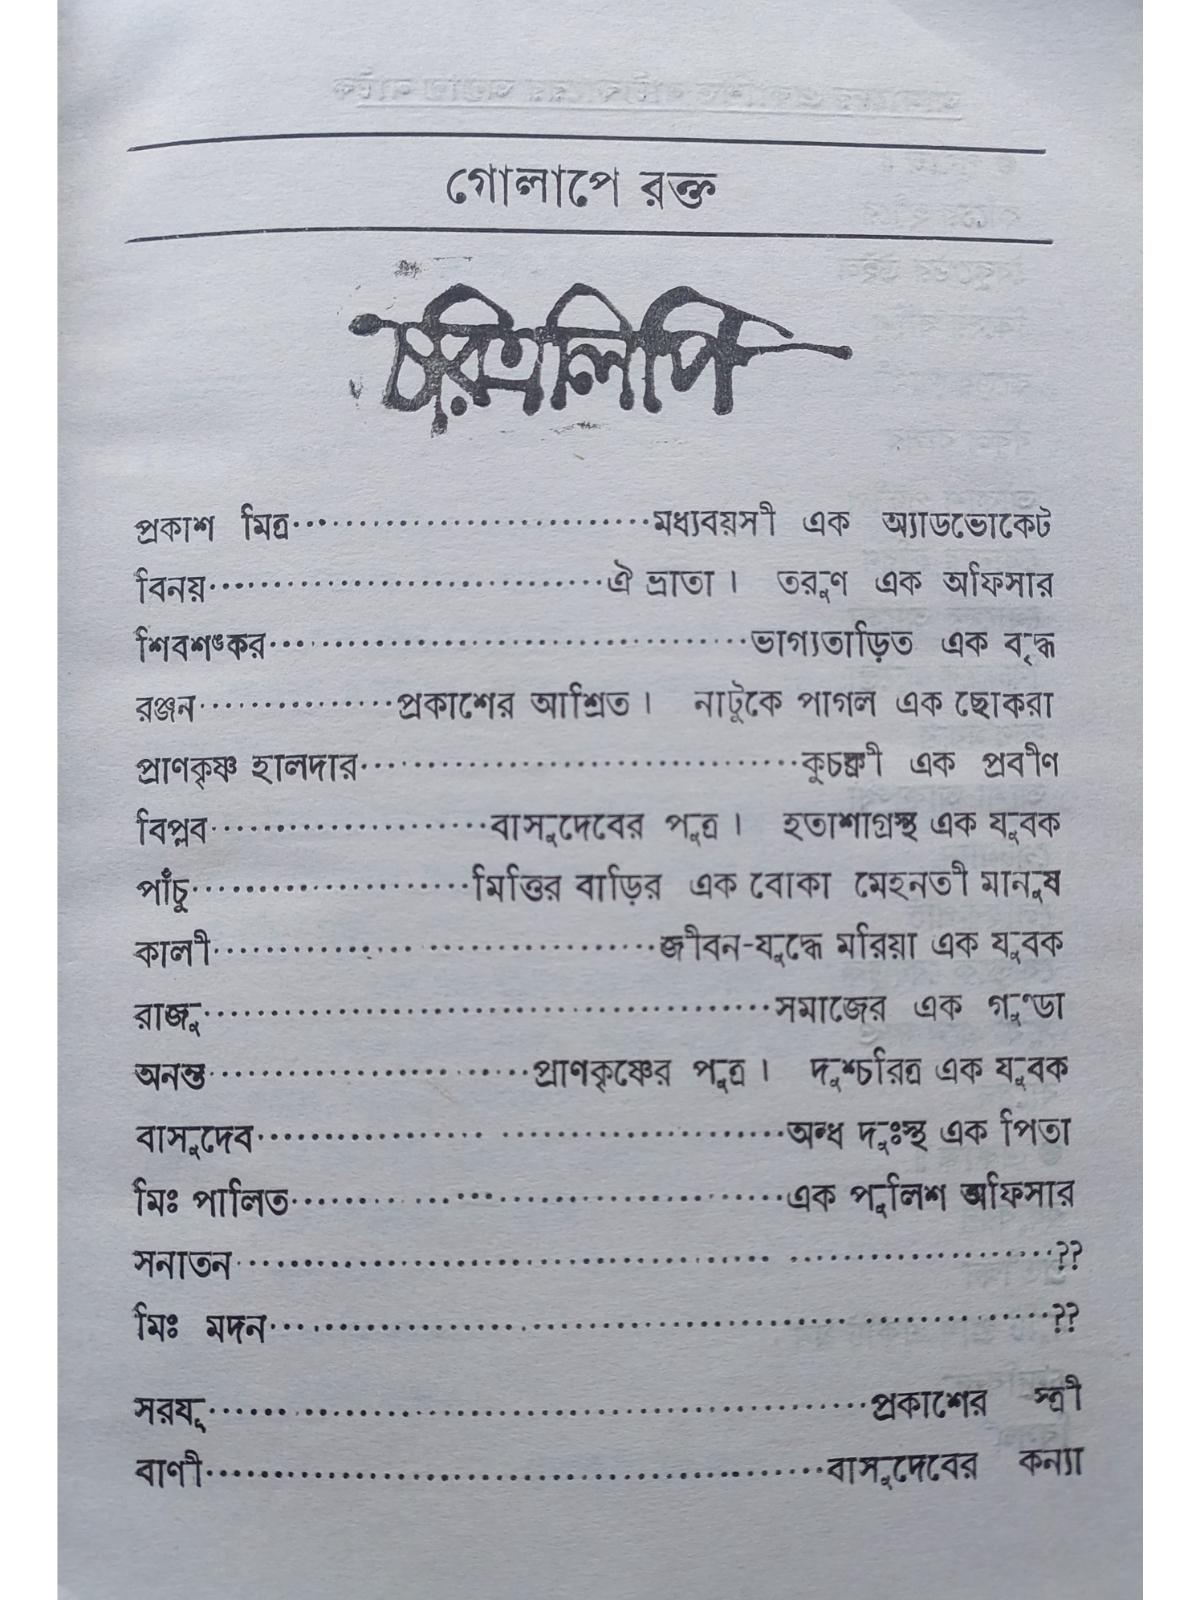 গোলাপে রক্ত
চরিত্রলিপি
প্রকাশ মিত্র..............................মধ্যবয়সী এক অ্যাডভোকেট
বিনয়..............................ঐ ভ্রাতা। তরুণ এক অফিসার
শিবশঙ্কর..............................ভাগ্যতাড়িত এক বৃদ্ধ
রঞ্জন...............প্রকাশের আশ্রিত। নাটুকে পাগল এক ছোকরা
প্রাণকৃষ্ণ হালদার..............................কুচক্রী এক প্রবীণ
বিপ্লব......................বাসুদেবের পুত্র। হতাশাগ্রস্থ এক যুবক
পাঁচু......................মিত্তির বাড়ির এক বোকা মেহনতী মানুষ
কালী..............................জীবন-যুদ্ধে মরিয়া এক যুবক
রাজু..............................সমাজের এক গুণ্ডা
অনন্ত......................প্রাণকৃষ্ণের পুত্র। দুশ্চরিত্র এক যুবক
বাসুদেব..............................অন্ধ দুঃস্থ এক পিতা
মিঃ পালিত..............................এক পুলিশ অফিসার
সনাতন..............................??
মিঃ মদন..............................??
সরযূ..............................প্রকাশের স্ত্রী
বাণী..............................বাসুদেবের কন্যা